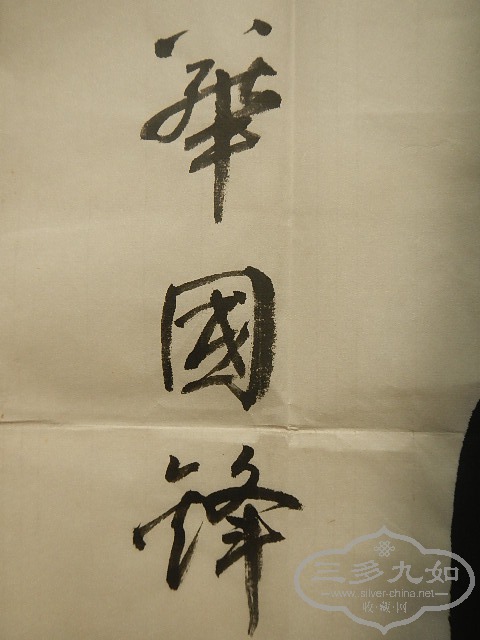 華
國
鋒
三多九如
www.silver-china.net
收·藏·网